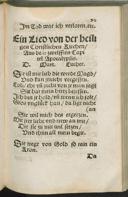 Im Tod war ich verloren ꝛc.
Ein Lied von der heili
gen Christlichen Kirchen/
Aus dem zwelfften Capi
tel Apocalypsis.
D. Mart. Luther.
Sie ist mir lieb die werde Magd/
Und kan jr nicht vergessen.
Lob/ ehr und zucht von jr man sagt
Sie hat mein hertz besessen.
Ich bin jr hold/ und wenn ich solt
Gros unglück han/ da ligt nicht
an
Sie wil mich des ergetzen.
Mit jrer lieb und trew an mir/
Die sie zu mir wil setzen/
Und thun all mein begir.
Sie tregt von Gold so rein ein
Kron.
Da